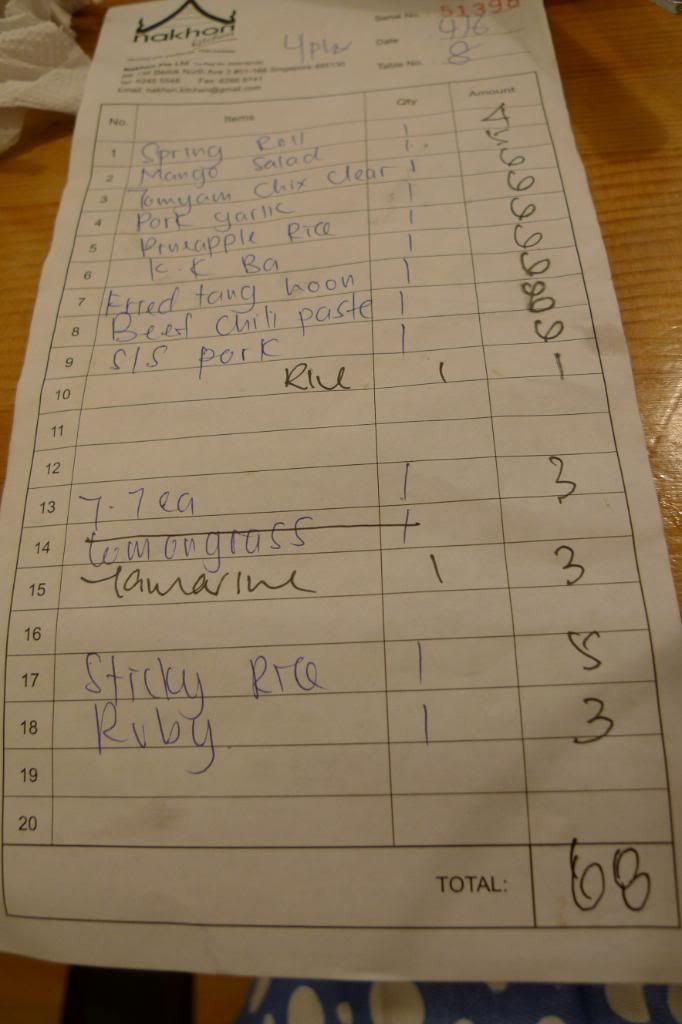 nakhon
kitchen
Serial No. 51398
4pls Date 4/6
Nakhon Pte Ltd
Table No. 8
Email: nakhon.kitchen@gmail.com
No. Items Qty Amount
1 Spring Roll 1
2 Mango Salad 1 5
3 Tomyam Chix Clear 1 6
4 Pork garlic 1 6
5 Pineapple Rice 1 6
6 K.K Ba 1 6
7 Fried tang hoon 1 6
8 Beef chili paste 1
9 S/S pork 1 6
10 Rice 1 1
11
12
13 T. Tea 1 3
14 Lemongrass 1
15 Tamarine 1 3
16
17 Sticky Rice 1 5
18 Ruby 1 3
19
20
TOTAL: 68